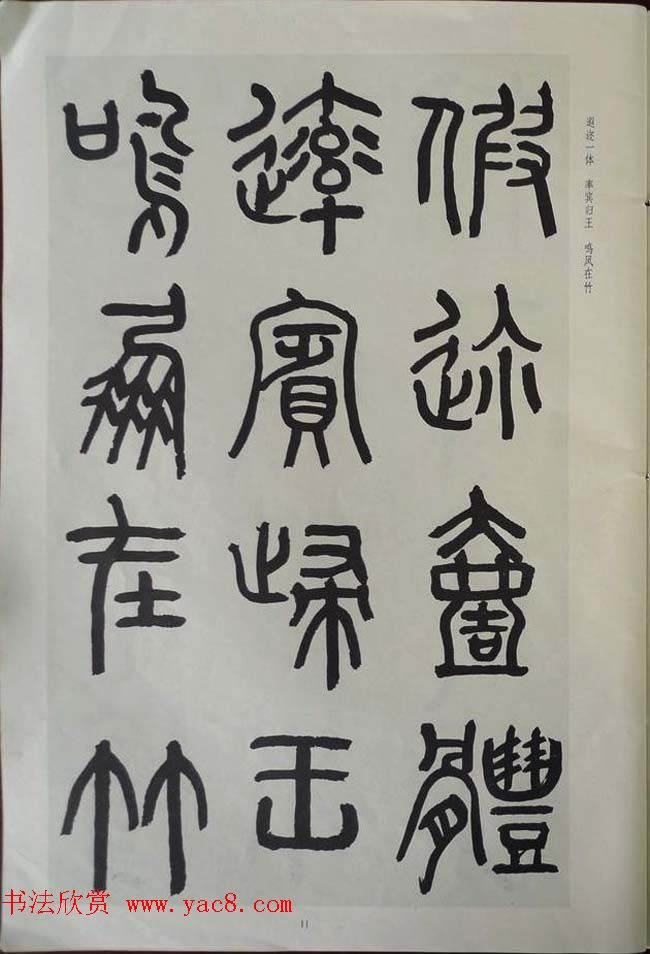 遐迩一体 率宾归王 鸣凤在竹
假迩壹體
䢦賓歸王
鳴鳳在竹
11
书法欣赏 www.yac8.com